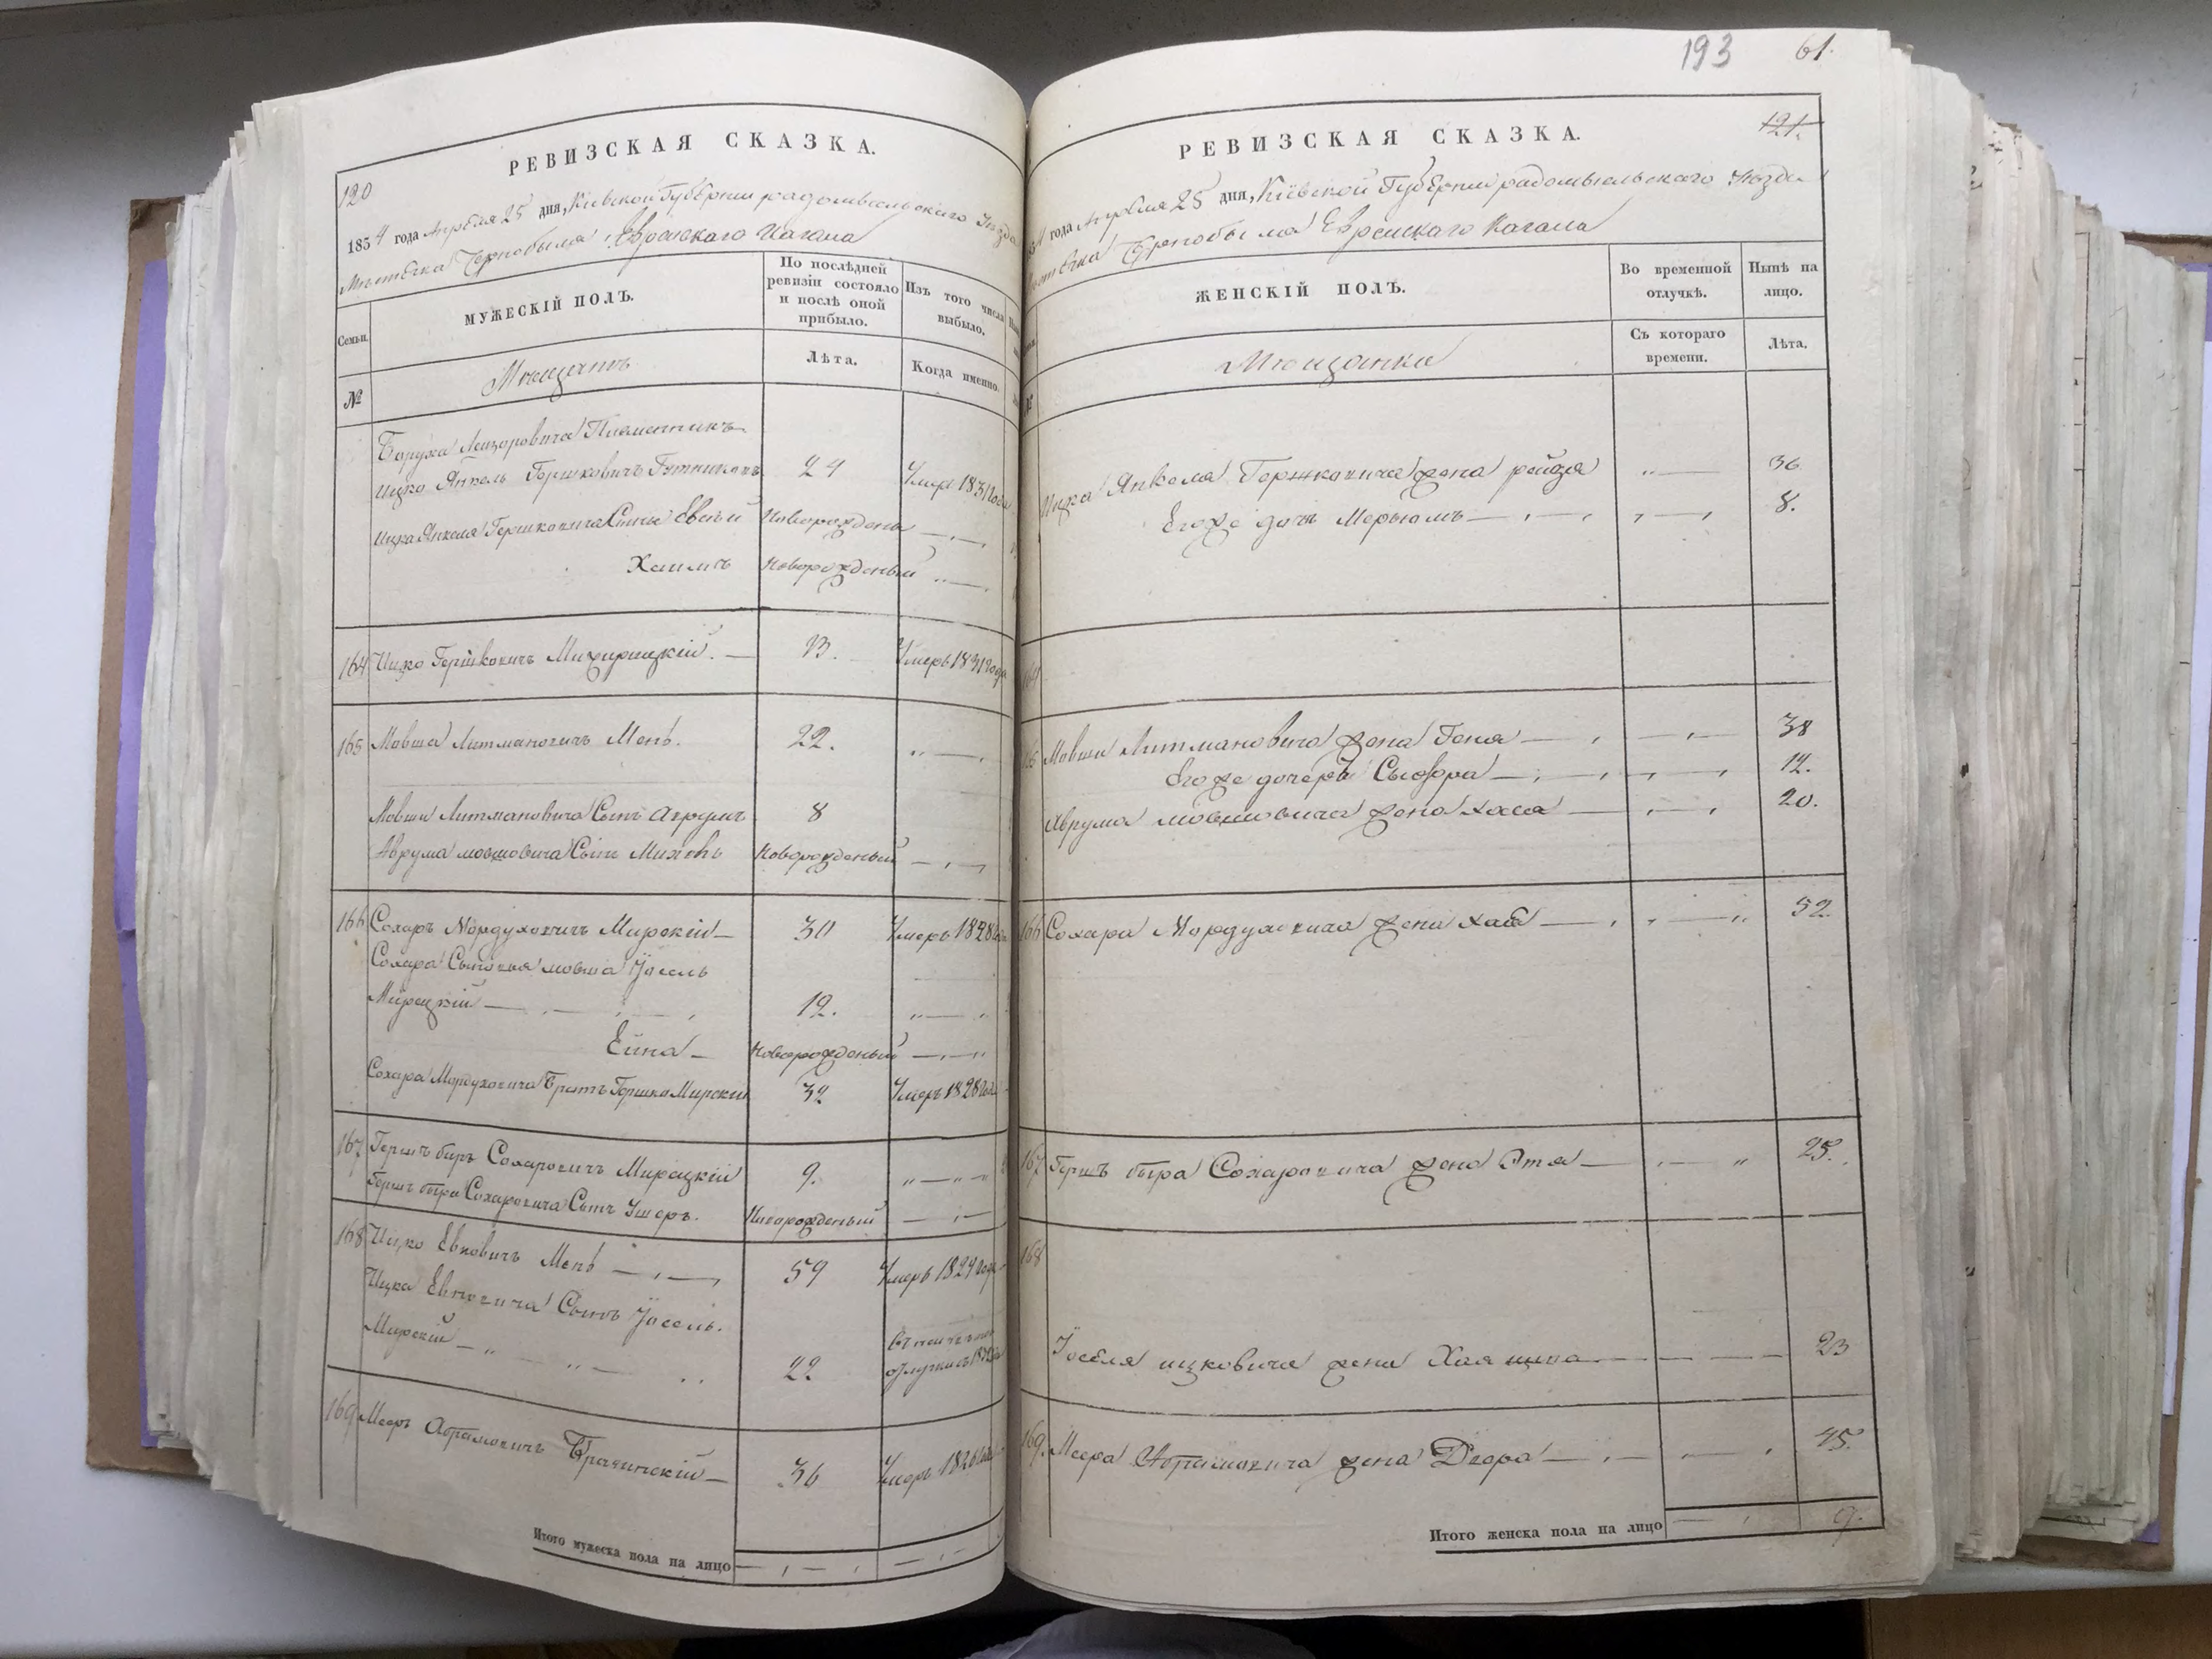 120
РЕВИЗСКАЯ СКАЗКА.
1834 года Апреля 25 дня, Кіевской Губерніи радомысльскаго уезда
Местечка Чернобыля Еврейскаго Кагала
Семьи.
МУЖЕСКІЙ ПОЛЪ.
По послѣдней ревизіи состояло и послѣ оной прибыло.
Изъ того числа выбыло.
№
Мещанъ
Лѣта.
Когда именно.
Боруха Лейзоровича Племенникъ
Ицко Янкель Гершковичъ 24 Умеръ 1831 года
Ицка Янкеля Гершковича Сыны Евсей Новорожденый
Хаимъ Новорожденый
164 Ицко Гершковичъ 23. Умеръ 1831 года
165 Мовша Литмановичъ Мень. 22.
Мовши Литмановича Сынъ Аврумъ 8
Аврума мовшовича Сынъ Михель Новорожденый
166 Сохаръ Мордуховичъ Мирскій 30 Умеръ 1828
Сохара Сыновья мовша Іосель
Мирецкій 12.
Ейна Новорожденый
Сохара Мордуховича Братъ Гершко Мирскій 32 Умеръ 1828 года
167 Гершъ беръ Сохаровичъ Мирецкій 9.
Гершъ бера Сохаровича Сынъ Ушеръ. Новорожденый
168 Ицко Евновичъ Мень 59 Умеръ 1829 года
Ицка Евновича Сынъ Іосель.
Мирскій 22
169 Мееръ Абрамовичъ 36 Умеръ 1826 года
Итого мужеска пола на лицо
193 61.
121.
РЕВИЗСКАЯ СКАЗКА.
года Апреля 25 дня, Кіевской Губерніи радомысльскаго уезда
Чернобыля Еврейскаго Кагала
ЖЕНСКІЙ ПОЛЪ.
Во временной отлучкѣ.
Нынѣ на лицо.
Мещанки
Съ котораго времени.
Лѣта.
Ицка Янкеля Гершковича жена рейза 36.
Его же дочь Мерьямъ 8.
164
165 Мовши Литмановича жена Геня 38
Его же дочерь 12.
Аврума мовшовича жена хася 20.
166 Сохара Мордуховича жена хая 52.
167 Гершъ бера Сохаровича жена Этя 25.
168
Іоселя ицковича жена Хая ципа 23
169. Меера Абрамовича жена Двора 45.
Итого женска пола на лицо 9.